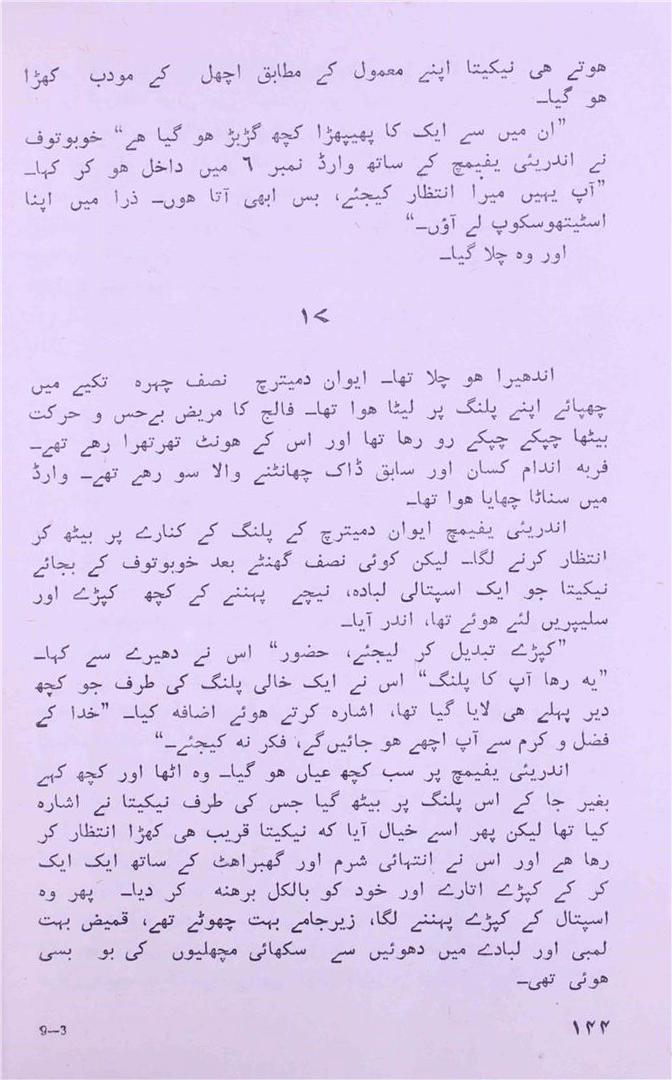 ہوتے ہی نیکیتا اپنے معمول کے مطابق اچھل کے مودب کھڑا
ہو گیا۔
”ان میں سے ایک کا پھیپھڑا کچھ گڑبڑ ہو گیا ہے“ خوبوتوف
نے اندریئی یفیمچ کے ساتھ وارڈ نمبر ٦ میں داخل ہو کر کہا۔
”آپ یہیں میرا انتظار کیجئے، بس ابھی آتا ہوں۔ ذرا میں اپنا
اسٹیتھوسکوپ لے آؤں۔“
اور وہ چلا گیا۔
۱۷
اندھیرا ہو چلا تھا۔ ایوان دمیترچ نصف چہرہ تکیے میں
چھپائے اپنے پلنگ پر لیٹا ہوا تھا۔ فالج کا مریض بےحس و حرکت
بیٹھا چپکے چپکے رو رہا تھا اور اس کے ہونٹ تھرتھرا رہے تھے۔
فربہ اندام کسان اور سابق ڈاک چھانٹنے والا سو رہے تھے۔ وارڈ
میں سناٹا چھایا ہوا تھا۔
اندریئی یفیمچ ایوان دمیترچ کے پلنگ کے کنارے پر بیٹھ کر
انتظار کرنے لگا۔ لیکن کوئی نصف گھنٹے بعد خوبوتوف کے بجائے
نیکیتا جو ایک اسپتالی لبادہ، نیچے پہننے کے کچھ کپڑے اور
سلیپریں لئے ہوئے تھا، اندر آیا۔
”کپڑے تبدیل کر لیجئے، حضور“ اس نے دھیرے سے کہا۔
”یہ رہا آپ کا پلنگ“ اس نے ایک خالی پلنگ کی طرف جو کچھ
دیر پہلے ہی لایا گیا تھا، اشارہ کرتے ہوئے اضافہ کیا۔ ”خدا کے
فضل و کرم سے آپ اچھے ہو جائیںگے، فکر نہ کیجئے۔“
اندریئی یفیمچ پر سب کچھ عیاں ہو گیا۔ وہ اٹھا اور کچھ کہے
بغیر جا کے اس پلنگ پر بیٹھ گیا جس کی طرف نیکیتا نے اشارہ
کیا تھا لیکن پھر اسے خیال آیا کہ نیکیتا قریب ہی کھڑا انتظار کر
رہا ہے اور اس نے انتہائی شرم اور گھبراہٹ کے ساتھ ایک ایک
کر کے کپڑے اتارے اور خود کو بالکل برہنہ کر دیا۔ پھر وہ
اسپتال کے کپڑے پہننے لگا، زیرجامے بہت چھوٹے تھے، قمیض بہت
لمبی اور لبادے میں دھوئیں سے سکھائی مچھلیوں کی بو بسی
ہوئی تھی۔
۱۴۴
9—3